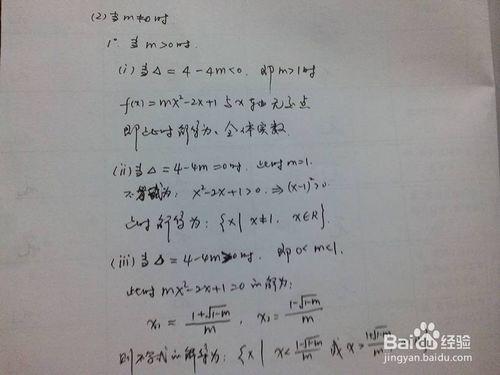 (2) 当 m≠0 时
1° 当 m>0 时.
(i) 当 Δ = 4-4m<0. 即 m>1 时
f(x) = mx²-2x+1 与 x 轴无交点
即此时解集为、全体实数.
(ii) 当 Δ = 4-4m =0 时. 此时 m=1.
不等式为: x²-2x+1>0. ⇒ (x-1)²>0.
此时解集为: {x | x≠1, x∈R}.
(iii) 当 Δ = 4-4m>0 时. 即 0<m<1.
此时 mx²-2x+1=0 的解为:
x₁ = (1+√(1-m))/m, x₂ = (1-√(1-m))/m
则不等式的解集为: {x | x< (1-√(1-m))/m 或 x> (1+√(1-m))/m
Baidu 经验
jingyan.baidu.com